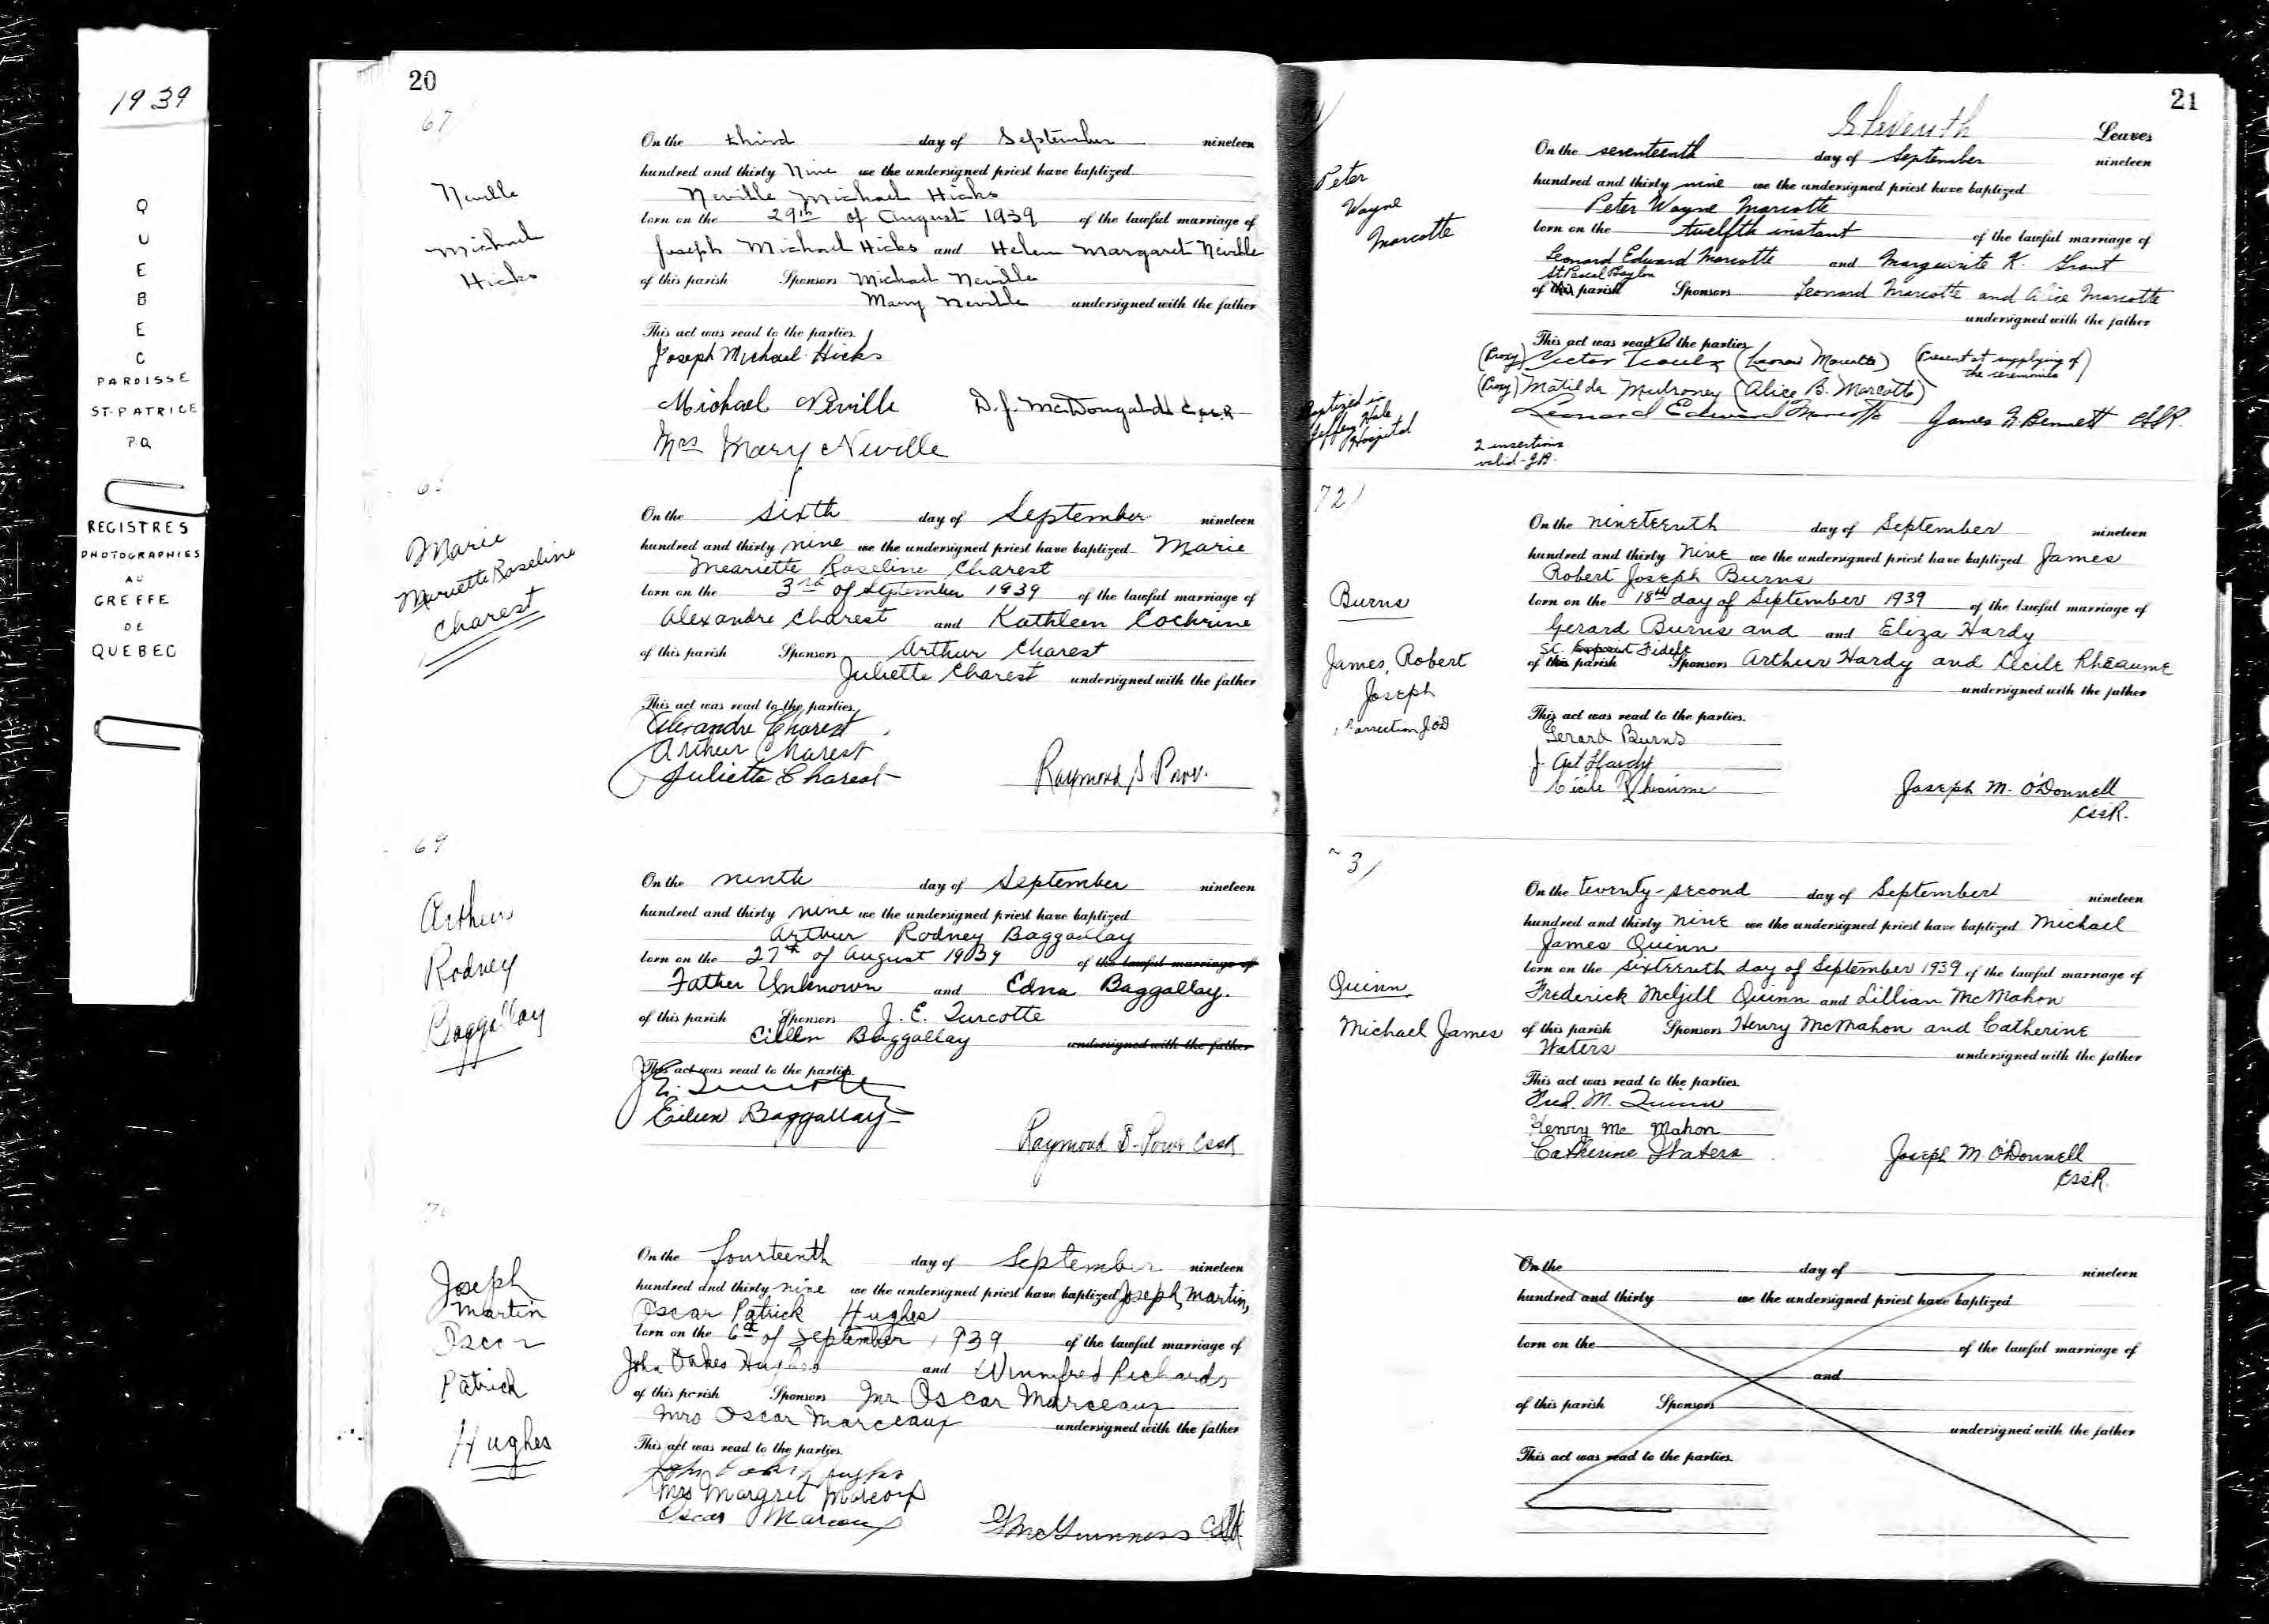 1939
QUEBEC
PAROISSE
ST-PATRICE
P.Q
REGISTRES
PHOTOGRAPHIES
AU
GREFFE
DE
QUEBEC
20
67
Neville
Michael
Hicks
On the third day of September nineteen
hundred and thirty Nine we the undersigned priest have baptized
Neville Michael Hicks
born on the 29th of August 1939 of the lawful marriage of
Joseph Michael Hicks and Helen Margaret Neville
of this parish Sponsors Michael Neville
Mary Neville undersigned with the father
This act was read to the parties.
Joseph Michael Hicks
Michael Neville D.J. McDougald C.SS.R
Mrs Mary Neville
Marie
Mariette Roseline
Charest
On the sixth day of September nineteen
hundred and thirty nine we the undersigned priest have baptized Marie
Meariette Roseline Charest
born on the 3rd of September 1939 of the lawful marriage of
Alexandre Charest and Kathleen Cochrine
of this parish Sponsors Arthur Charest
Juliette Charest undersigned with the father
This act was read to the parties.
Alexandre Charest
Arthur Charest
Juliette Charest
Raymond S
69
Arthur
Rodney
Baggallay
On the ninth day of September nineteen
hundred and thirty nine we the undersigned priest have baptized
Arthur Rodney Baggallay
born on the 27th of August 1939 of the lawful marriage of
Father Unknown and Edna Baggallay.
of this parish Sponsors J. E. Turcotte
Eillen Baggallay undersigned with the father
This act was read to the parties.
Eileen Baggallay
Raymond CSSR
Joseph
Martin
Oscar
Patrick
Hughes
On the fourteenth day of September nineteen
hundred and thirty nine we the undersigned priest have baptized Joseph, Martin,
Oscar Patrick Hughes
born on the 6th of September 1939 of the lawful marriage of
John Oakes Hughes and Winnifred Richards
of this parish Sponsors Mr Oscar Marceaux
Mrs Oscar Marceaux undersigned with the father
This act was read to the parties.
Mrs Margret Marcoux
Oscar Marcoux
McGuinness CSSR
21
Eleventh Leaves
Peter
Wayne
Marcotte
On the seventeenth day of September nineteen
hundred and thirty nine we the undersigned priest have baptized
Peter Wayne Marcotte
born on the twelfth instant of the lawful marriage of
Leonard Edward Marcotte and Marguerite K. Grant
St Pascal Baylon
of this parish Sponsors Leonard Marcotte and Alice Marcotte
undersigned with the father
This act was read to the parties.
(Proxy) Victor (Leonard Marcotte) (Present at supplying of
the ceremonies)
(Proxy) Matilda Mulroney (Alice B. Marcotte)
Leonard Edward Marcotte James Bennett CSSR.
Baptized in
Jeffery Hale
Hospital
2 insertions
valid - J.B.
72
Burns
James, Robert
Joseph
correction J.O'D
On the nineteenth day of September nineteen
hundred and thirty nine we the undersigned priest have baptized James
Robert Joseph Burns
born on the 18th day of September 1939 of the lawful marriage of
Gerard Burns and and Eliza Hardy
St. Fidele
of this parish Sponsors Arthur Hardy and Cecile Rheaume
undersigned with the father
This act was read to the parties.
Gerard Burns
J. Art Hardy
Cécile Rheaume
Joseph M. O'Donnell
CSSR.
3
Quinn
Michael James
On the twenty-second day of September nineteen
hundred and thirty nine we the undersigned priest have baptized Michael
James Quinn
born on the sixteenth day of September 1939 of the lawful marriage of
Frederick McGill Quinn and Lillian McMahon
of this parish Sponsors Henry McMahon and Catherine
Waters undersigned with the father
This act was read to the parties.
Fred. M. Quinn
Henry Mc Mahon
Catherine Waters
Joseph M O'Donnell
CSSR.
On the day of nineteen
hundred and thirty we the undersigned priest have baptized
born on the of the lawful marriage of
and
of this parish Sponsors
undersigned with the father
This act was read to the parties.